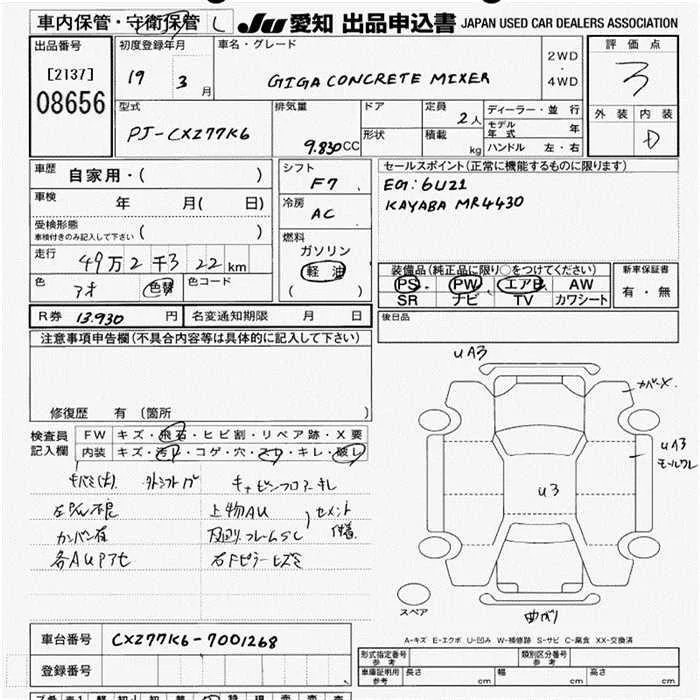 車内保管・守衛保管
JU 愛知 出品申込書 JAPAN USED CAR DEALERS ASSOCIATION
出品番号
[2137]
08656
初度登録年月
19 3 月
車名・グレード
GIGA CONCRETE MIXER
2WD
・
4WD
評価点
3
外装 内装
D
型式
PJ-CXZ77K6
排気量
9.830CC
ドア
形状
定員
2人
積載
kg
ディーラー・並行
モデル年式 年
ハンドル 左・右
車歴 自家用・( )
車検 年 月( 日)
受検形態
車検付きのみ記入して下さい ( )
走行 49万2千322km
色 アオ 色替 色コード
シフト
F7
冷房
AC
燃料
ガソリン
軽油
( )
セールスポイント(正常に機能するものに限ります)
Eng:6U21
KAYABA MR4430
装備品(純正品に限り○をつけてください)
PS PW エアB AW
SR ナビ TV カワシート
新車保証書
有・無
R券 13.930 円 名変通知期限 月 日
後日品
注意事項申告欄(不具合内容等は具体的に記入して下さい)
修復歴 有(箇所 )
検査員
記入欄
FW キズ・飛石・ヒビ割・リペア跡・X要
内装 キズ・汚れ・コゲ・穴・スレ・キレ・破レ
キャビンフロアーキレ
上物AU
セメント
カンバン有
右Fピラーヒズミ
UA3
カバーX
UA3
モールワレ
U3
スペア
曲がり
A-キズ E-エクボ U-凹み W-補修跡 S-サビ C-腐食 XX-交換済
車台番号 CXZ77K6-7001268
登録番号
形式指定番号
参考
類別区分番号
参考
車庫証明用
参考
長さ cm 幅 cm 高さ cm